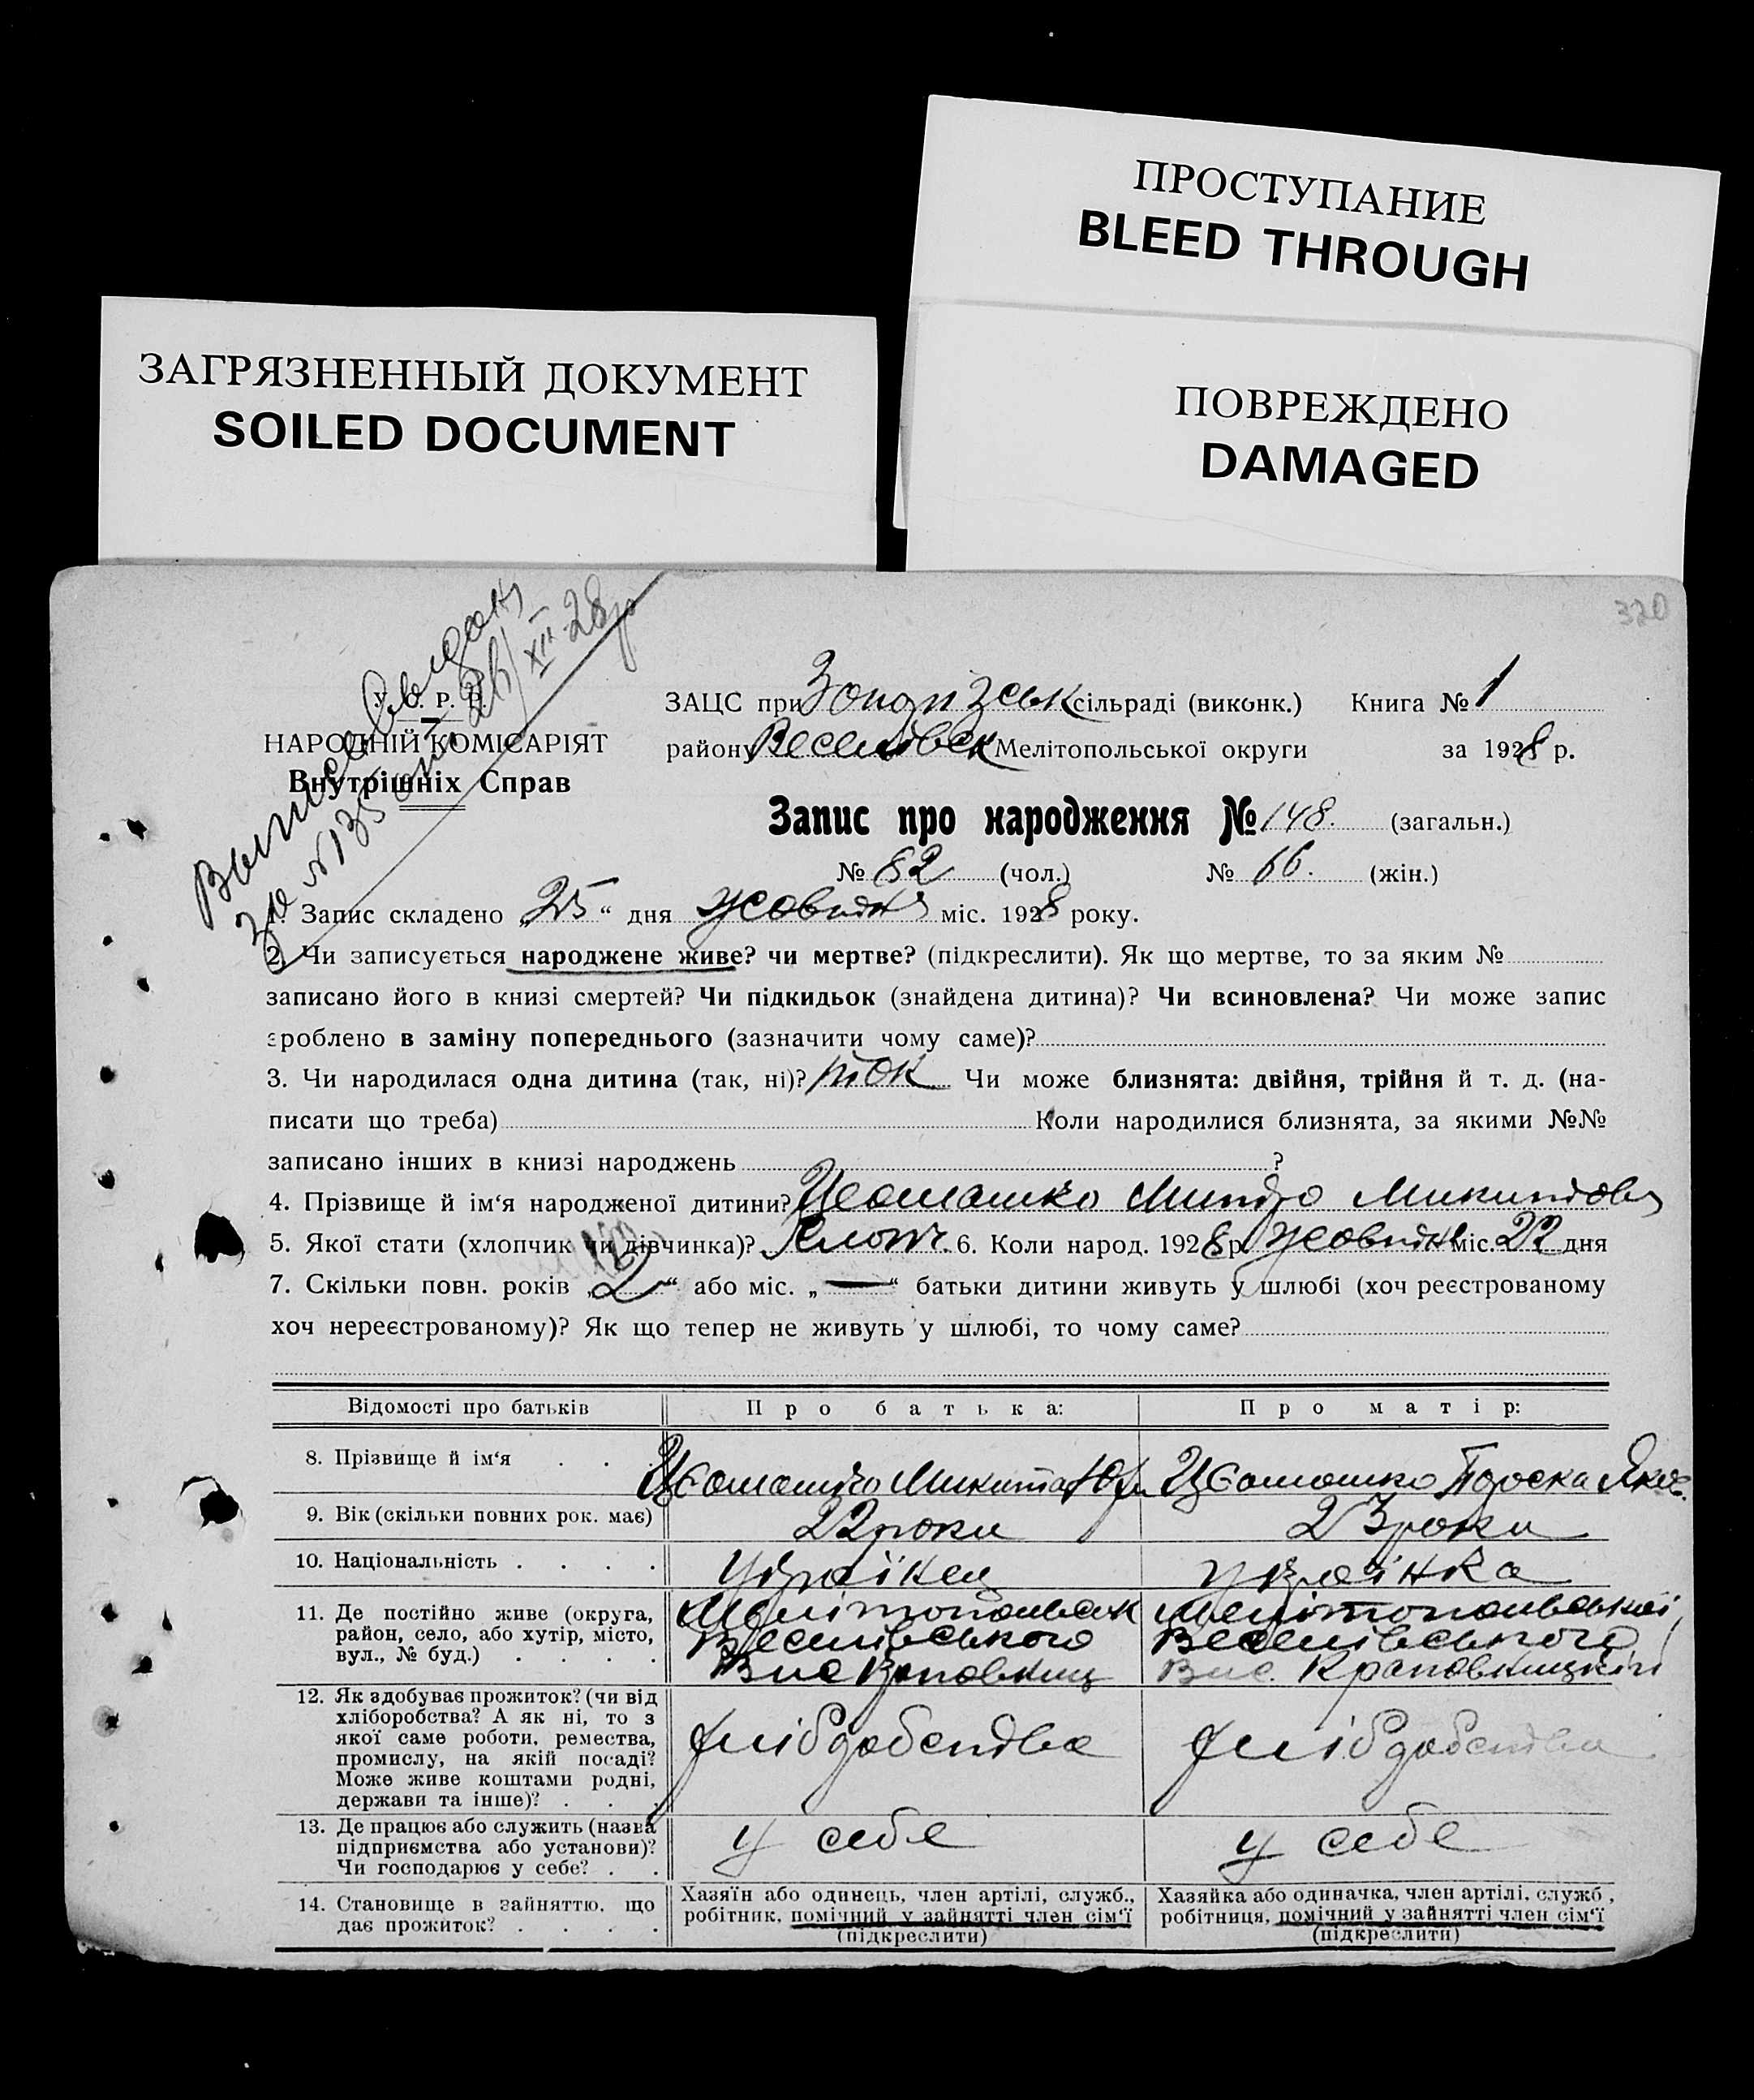 ПРОСТУПАНИЕ
BLEED THROUGH
ЗАГРЯЗНЕННЫЙ ДОКУМЕНТ
SOILED DOCUMENT
ПОВРЕЖДЕНО
DAMAGED
320
за № 135 XII 28р
У. С. Р. Р.
НАРОДНІЙ КОМІСАРІЯТ
Внутрішніх Справ
ЗАЦС при сільраді (виконк.) Книга № 1
району Веселівськ Мелітопольської округи за 1928 р.
Запис про народження № 148. (загальн.)
№ 82 (чол.) № 66. (жін.)
1. Запис складено „25“ дня жовтня міс. 1928 року.
2. Чи записується народжене живе? чи мертве? (підкреслити). Як що мертве, то за яким №
записано його в книзі смертей? Чи підкидьок (знайдена дитина)? Чи всиновлена? Чи може запис
зроблено в заміну попереднього (зазначити чому саме)?
3. Чи народилася одна дитина (так, ні)? так Чи може близнята: двійня, трійня й т. д. (на-
писати що треба) Коли народилися близнята, за якими №№
записано інших в книзі народжень ?
4. Прізвище й ім‘я народженої дитини?
5. Якої стати (хлопчик чи дівчинка)? Хлопч. 6. Коли народ. 1928 р. жовтня міс. 22 дня
7. Скільки повн. років „2“ або міс. „—“ батьки дитини живуть у шлюбі (хоч реєстрованому
хоч нереєстрованому)? Як що тепер не живуть у шлюбі, то чому саме?
Відомості про батьків Про батька: Про матір:
8. Прізвище й ім‘я Микита
9. Вік (скільки повних рок. має) 22 роки 23 роки
10. Національність Українец Українка
11. Де постійно живе (округа, Мелітопольськ Мелітопольської
район, село, або хутір, місто, Веселівського Веселівського
вул., № буд.) Вис Вис.
12. Як здобуває прожиток? (чи від
хліборобства? А як ні, то з
якої саме роботи, ремества,
промислу, на якій посаді?
Може живе коштами родні,
держави та інше)?
13. Де працює або служить (назва
підприємства або установи)? у себе у себе
Чи господарює у себе?
14. Становище в зайняттю, що Хазяїн або одинець, член артілі, служб., Хазяйка або одиначка, член артілі, служб,
дає прожиток? робітник, помічний у зайнятті член сім‘ї робітниця, помічний у зайнятті член сім‘ї
(підкреслити) (підкреслити)